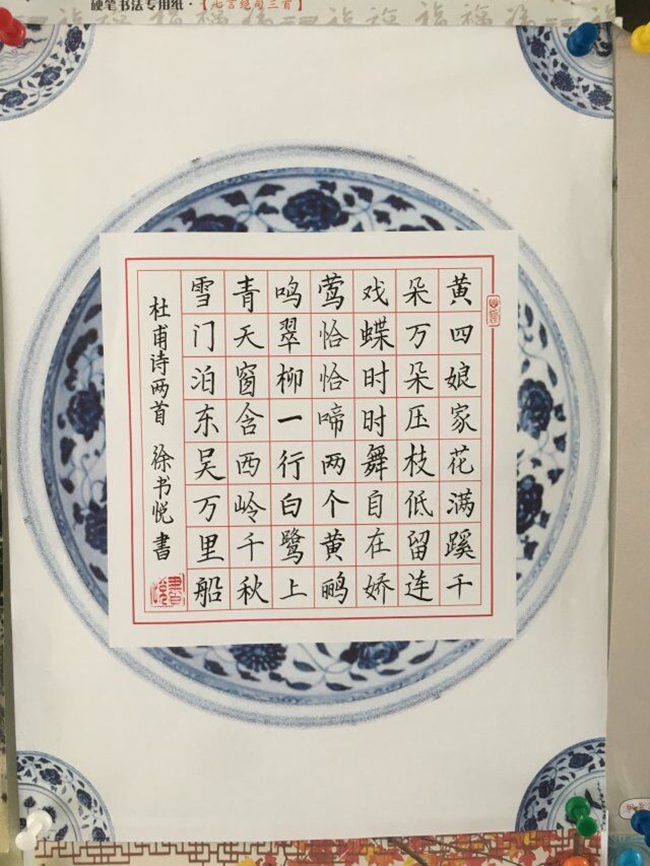 硬笔书法专用纸·【七言绝句三首】
黄四娘家花满蹊千
朵万朵压枝低留连
戏蝶时时舞自在娇
莺恰恰啼两个黄鹂
鸣翠柳一行白鹭上
青天窗含西岭千秋
雪门泊东吴万里船
杜甫诗两首 徐书悦书